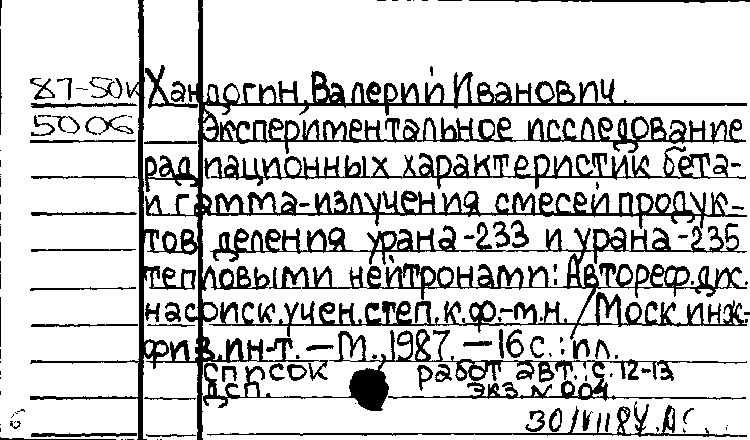 87-50к Хандогин, Валерий Иванович.
5006 Экспериментальное исследование
радиационных характеристик бета-
и гамма-излучения смесей продук-
тов деления урана-233 и урана-235
тепловыми нейтронами: Автореф. дис.
на соиск. учен. степ. к. ф.-м. н. / Моск. инж.-
физ. ин-т. — М., 1987. — 16 с. : ил.
список работ авт.: с. 12-13
ДСП. экз. N 004.
6